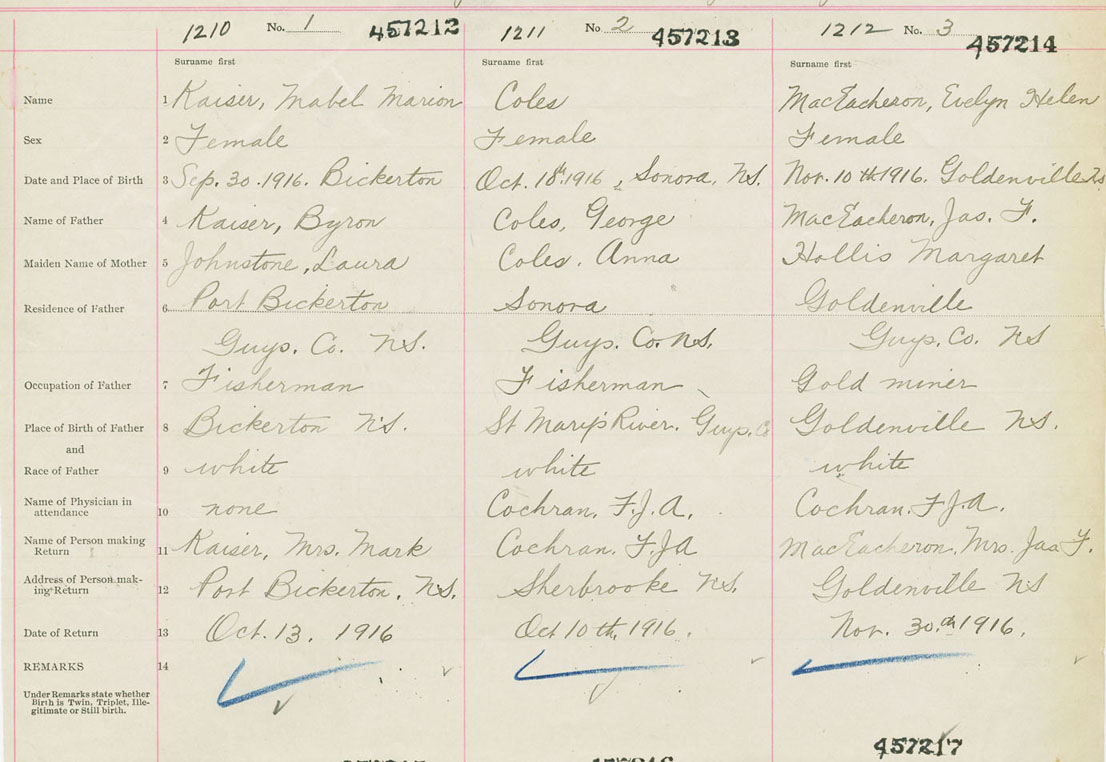 1210 No. 1 457212 1211 No 2 457213 1212 No. 3 457214
Surname first Surname first Surname first
Name 1 Kaiser, Mabel Marion Coles MacEacheron, Evelyn Helen
Sex 2 Female Female Female
Date and Place of Birth 3 Sep. 30. 1916. Bickerton Oct. 18th 1916, Sonora, N.S. Nov. 10th 1916. Goldenville N.S.
Name of Father 4 Kaiser, Byron Coles, George MacEacheron, Jas. F.
Maiden Name of Mother 5 Johnstone, Laura Coles. Anna Hollis Margaret
Residence of Father 6 Port Bickerton Sonora Goldenville
Guys. Co. N.S. Guys. Co. N.S. Guys. Co. N.S
Occupation of Father 7 Fisherman Fisherman Gold miner
Place of Birth of Father 8 Bickerton N.S. St Mary's River. Guys. Co Goldenville N.S.
and
Race of Father 9 white white white
Name of Physician in
attendance 10 none Cochran. F.J.A. Cochran. F.J.A.
Name of Person making
Return 11 Kaiser, Mrs. Mark Cochran. F.J.A MacEacheron, Mrs. Jas F.
Address of Person mak-
ing Return 12 Port Bickerton. N.S. Sherbrooke N.S. Goldenville N.S
Date of Return 13 Oct. 13. 1916 Oct 10th, 1916. Nov. 30.th 1916.
REMARKS 14
Under Remarks state whether
Birth is Twin, Triplet, Ille-
gitimate or Still birth.
457217